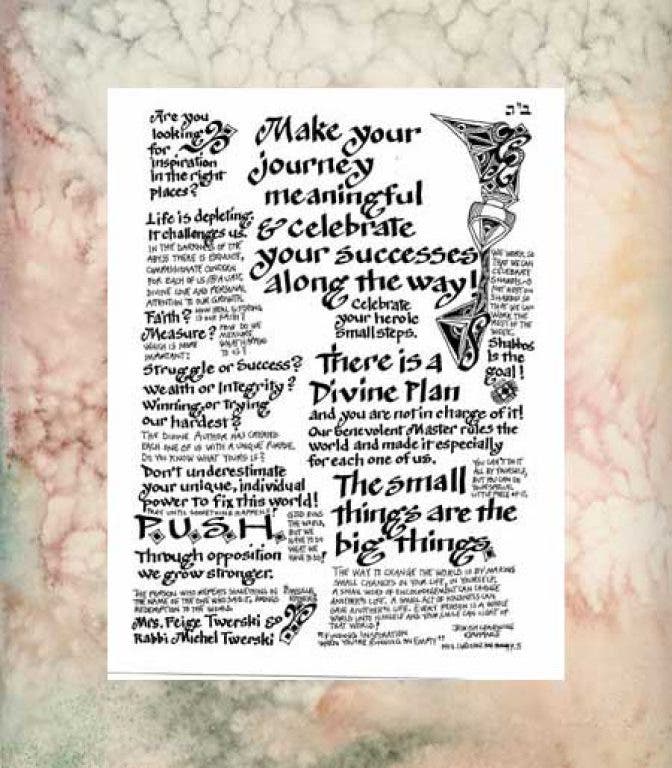 ב"ה
Are you
looking
for
Inspiration
In the right
places?
Life is depleting.
It challenges us.
IN THE DARKNESS OF THE
ABYSS THERE IS EXQUISITE,
COMPASSIONATE CONCERN
FOR EACH OF US,
DIVINE LOVE AND PERSONAL
ATTENTION TO OUR GROWTH.
Faith?
HOW REAL & STRONG
IS OUR FAITH?
Measure?
HOW DO WE
MEASURE
WHAT HAPPENS
TO US?
WHICH IS MORE
IMPORTANT:
Struggle or Success?
Wealth or Integrity?
Winning, or Trying
our hardest?
THE DIVINE AUTHOR HAS CREATED
EACH ONE OF US WITH A UNIQUE PURPOSE.
DO YOU KNOW WHAT YOURS IS?
Don't underestimate
your unique, individual
power to fix this world!
PRAY UNTIL SOMETHING HAPPENS!
P.U.S.H.
GOD RUNS
THE WORLD,
BUT WE
HAVE TO DO
WHAT WE
HAVE TO DO!
Through opposition
we grow stronger.
THE PERSON WHO REPEATS SOMETHING IN
THE NAME OF THE ONE WHO SAID IT, BRINGS
REDEMPTION TO THE WORLD
Mrs. Feige Twerski &
Rabbi Michel Twerski
Make your
journey
meaningful
& celebrate
your successes
along the way!
celebrate
your heroic
small steps.
WE WORK SO
THAT WE CAN
CELEBRATE
SHABBOS
NOT REST ON
SHABBOS SO
THAT WE CAN
WORK THE
REST OF THE
WEEK.
Shabbos
Is the
goal!
There is a
Divine Plan
and you are not in charge of it!
Our benevolent Master rules the
world and made it especially
for each one of us.
YOU CAN'T DO IT
ALL BY YOURSELF,
BUT YOU CAN DO
YOUR SPECIAL
LITTLE PIECE OF IT.
The small
things are the
big things.
THE WAY TO CHANGE THE WORLD IS BY MAKING
SMALL CHANGES IN YOUR LIFE, IN YOURSELF.
A SMALL WORD OF ENCOURAGEMENT CAN CHANGE
ANOTHER'S LIFE. A SMALL ACT OF KINDNESS CAN
SAVE ANOTHER'S LIFE. EVERY PERSON IS A WHOLE
WORLD UNTO HIMSELF AND YOUR SMILE CAN LIGHT UP
THAT WORLD!
"FINDING INSPIRATION
WHEN YOU'RE RUNNING ON EMPTY"
JEWISH LEARNING